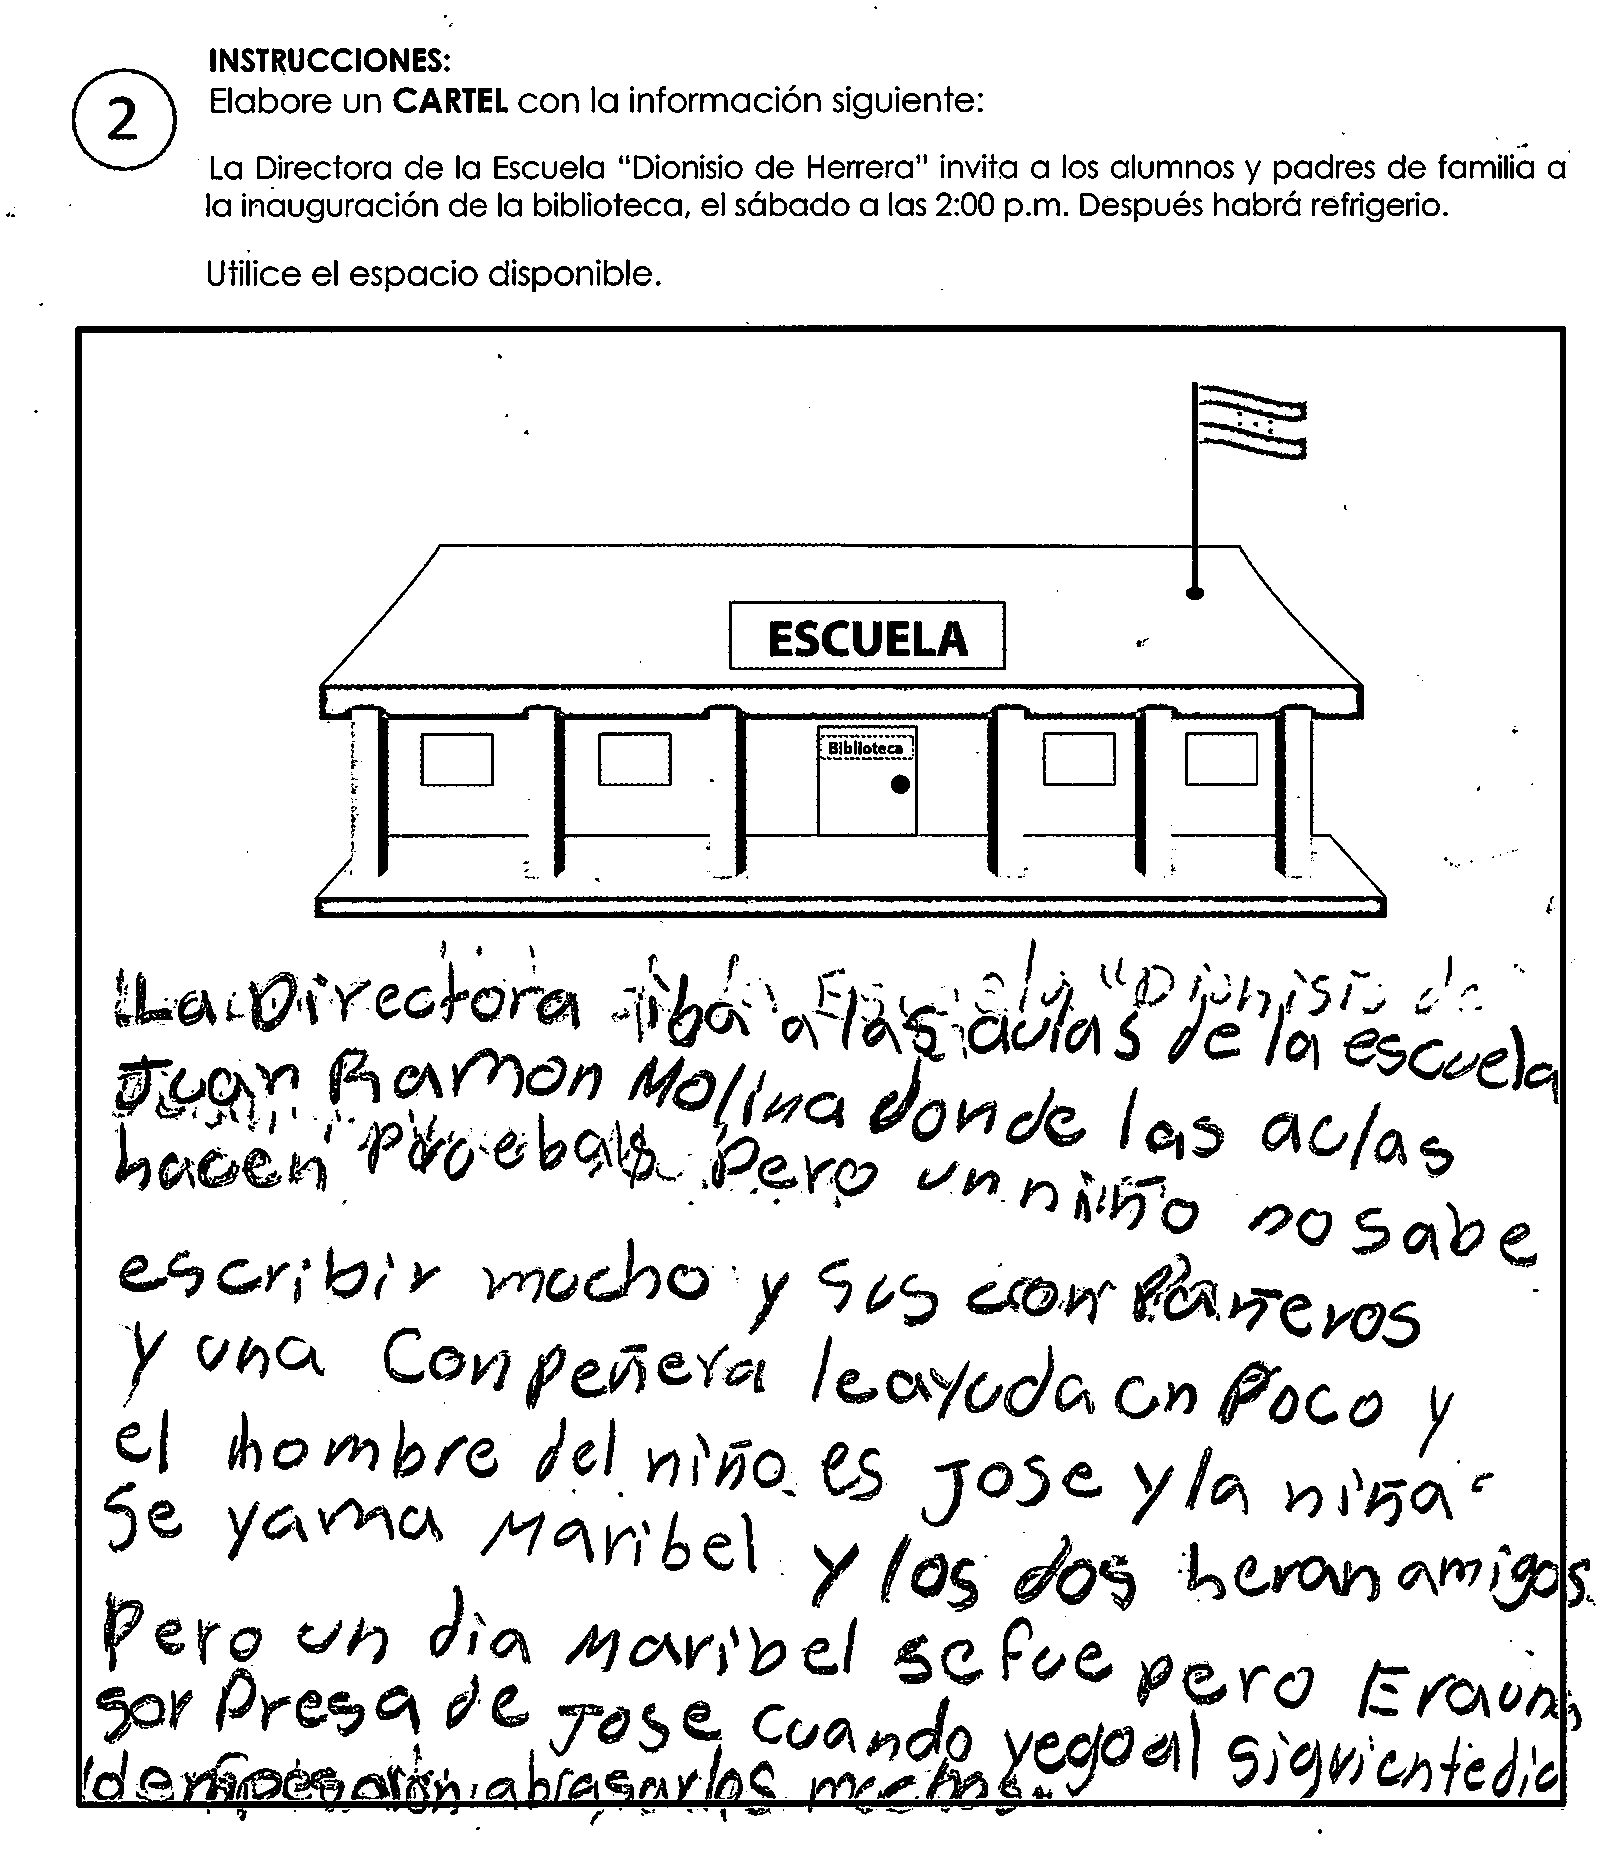 INSTRUCCIONES:
2
Elabore un CARTEL con la información siguiente:
La Directora de la Escuela "Dionisio de Herrera" invita a los alumnos y padres de familia a
la inauguración de la biblioteca, el sábado a las 2:00 p.m. Después habrá refrigerio.
Utilice el espacio disponible.
ESCUELA
Biblioteca
La Directora iba a las aulas de la escuela
Juan Ramon Molina donde las aulas
hacen Pruebas Pero un niño no sabe
escribir mucho y sus conpañeros
y una Conpeñera le ayuda un Poco y
el nombre del niño es Jose y la niña
Se yama Maribel y los dos heran amigos
Pero un dia Maribel se fue pero Era una
sor Presa de Jose cuando yego al siguiente dia
abrasarlos muchos.